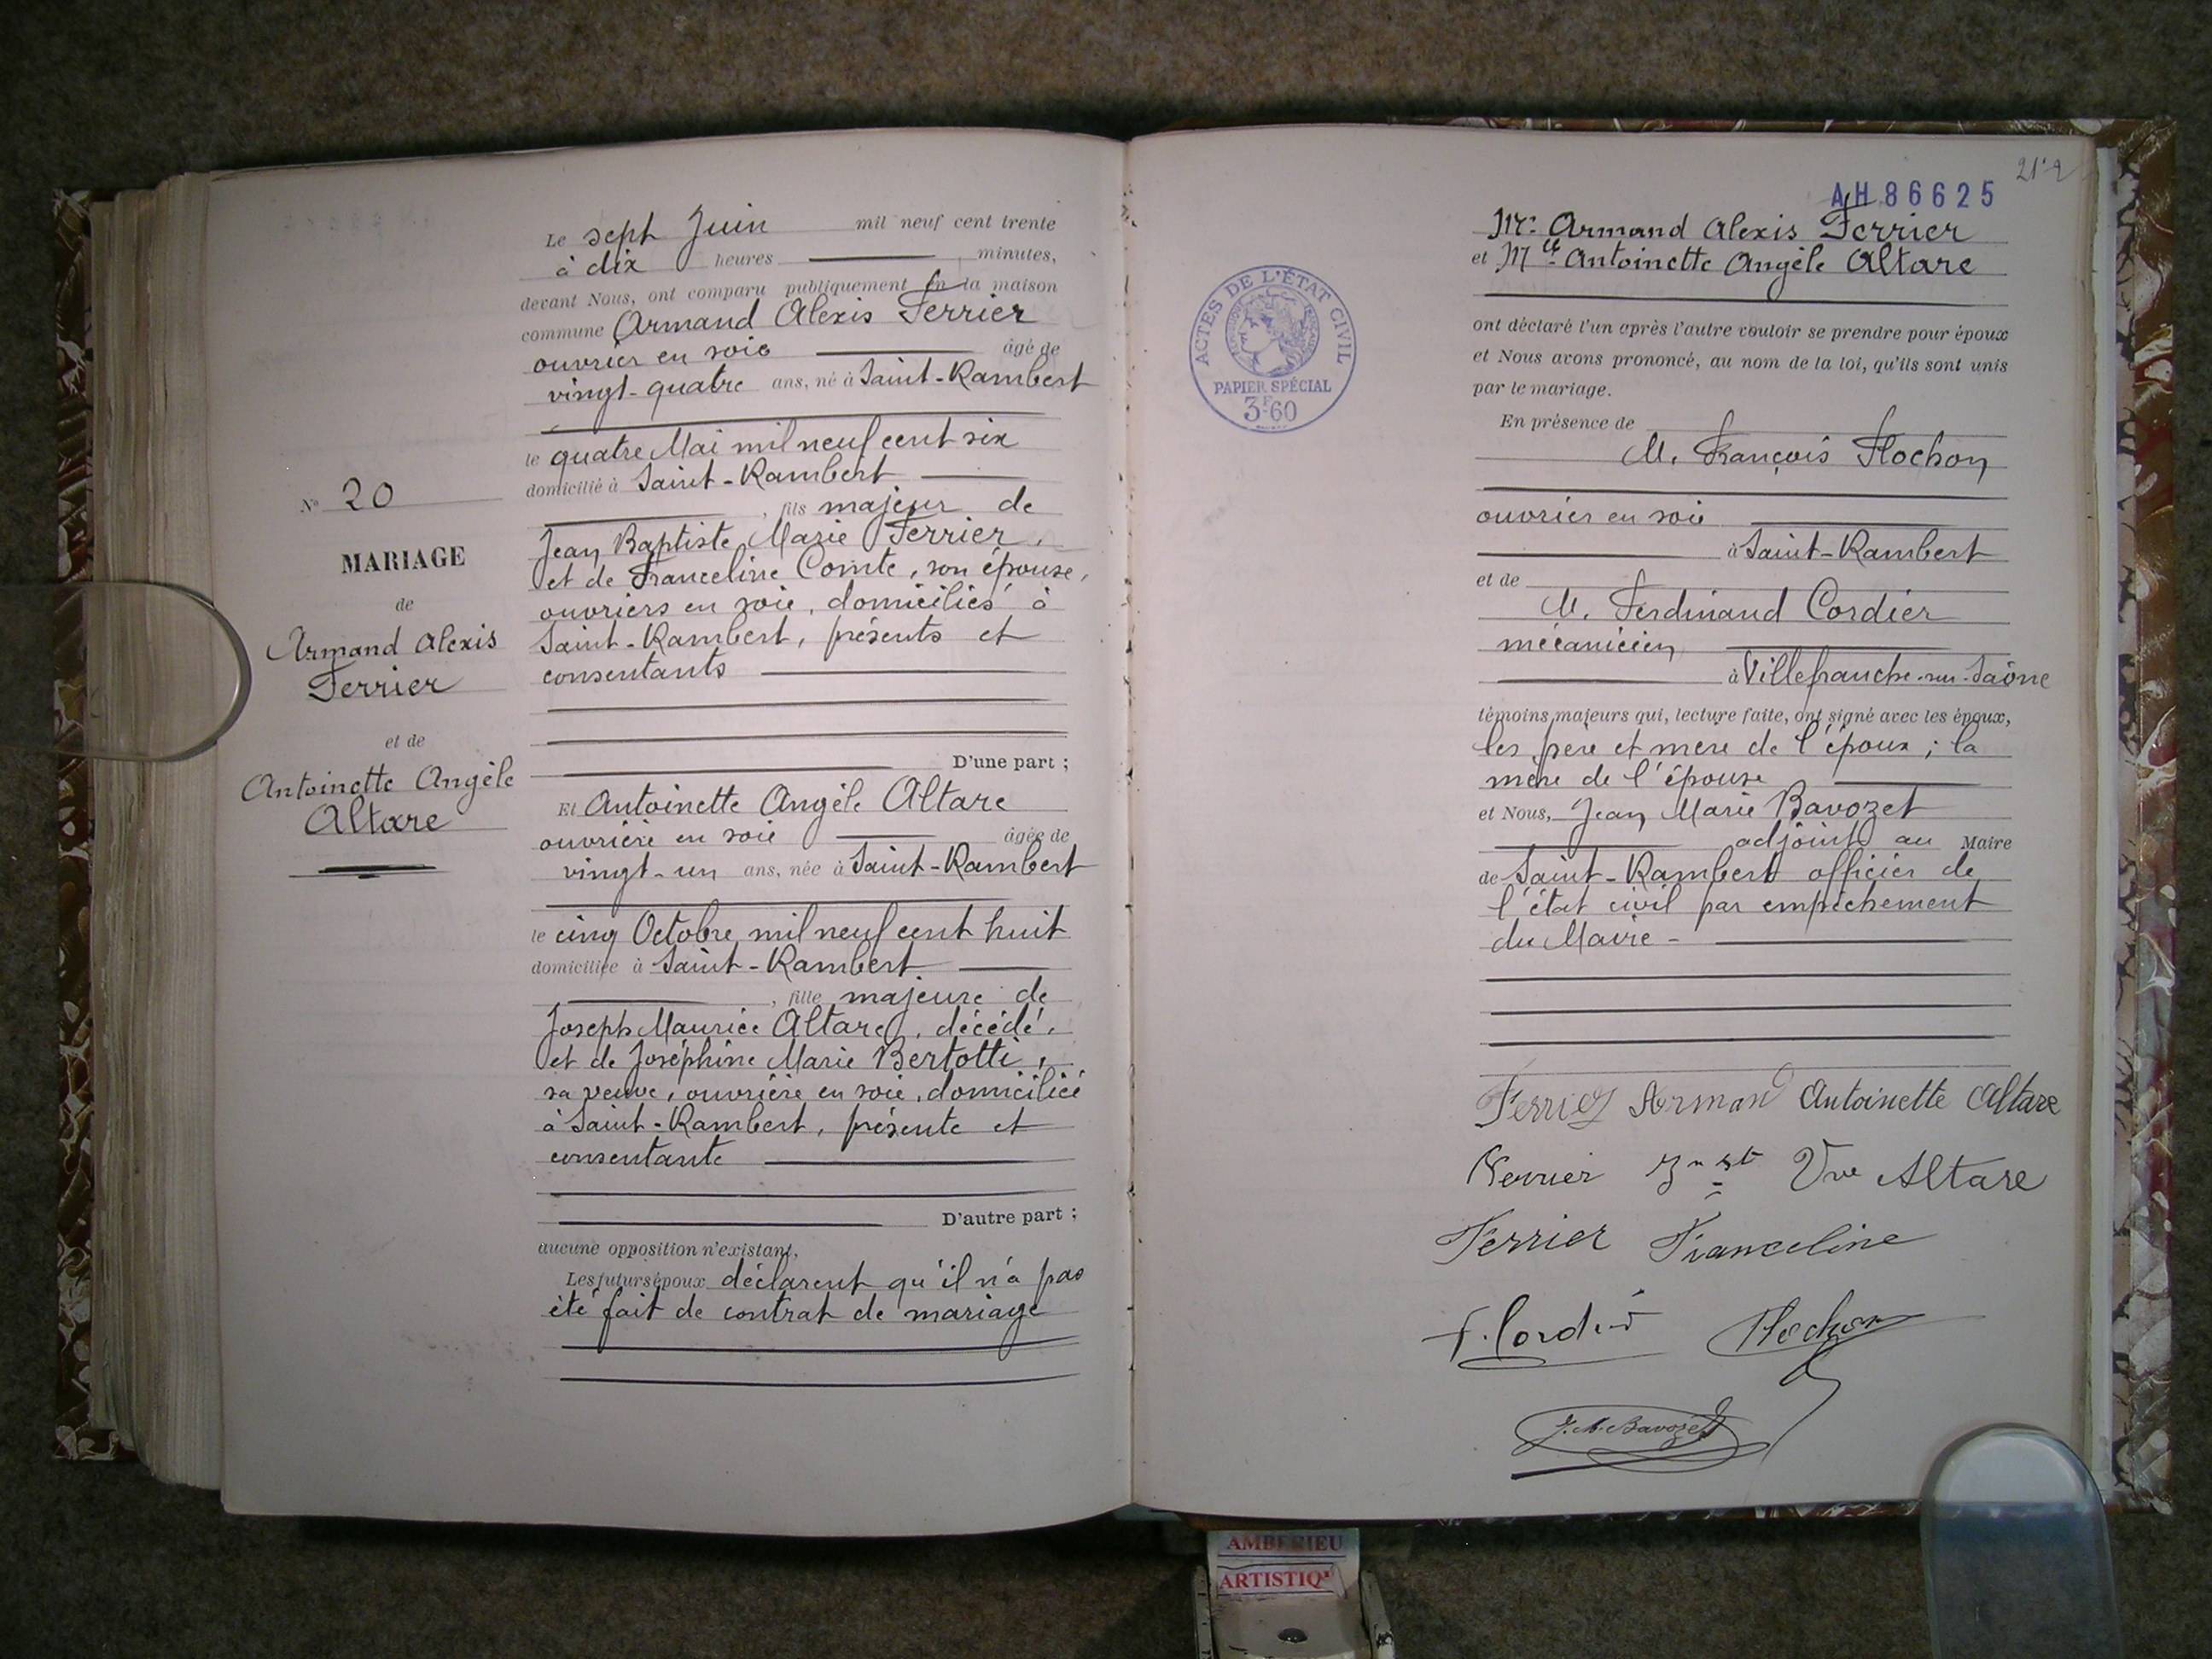 Le sept Juin mil neuf cent trente
à dix heures minutes,
devant Nous, ont comparu publiquement en la maison
commune Armand Alexis Ferrier
ouvrier en soie âgé de
vingt-quatre ans, né à Saint-Rambert
le quatre Mai mil neuf cent six
domicilié à Saint-Rambert
, fils majeur de
Jean Baptiste Marie Ferrier,
et de Franceline Comte, son épouse,
ouvriers en soie, domiciliés à
Saint-Rambert, présents et
consentants
D'une part ;
Et Antoinette Angèle Altare
ouvrière en soie âgée de
vingt-un ans, née à Saint-Rambert
le cinq Octobre mil neuf cent huit
domiciliée à Saint-Rambert
, fille majeure de
Joseph Maurice Altare, décédé,
et de Joséphine Marie Bertotti,
sa veuve, ouvrière en soie, domiciliée
à Saint-Rambert, présente et
consentante
D'autre part ;
aucune opposition n'existant,
Les futurs époux déclarent qu'il n'a pas
été fait de contrat de mariage
N° 20
MARIAGE
de
Armand Alexis
Ferrier
et de
Antoinette Angèle
Altare
212
AH86625
Mr. Armand Alexis Ferrier
et Mlle Antoinette Angèle Altare
ont déclaré l'un après l'autre vouloir se prendre pour époux
et Nous avons prononcé, au nom de la loi, qu'ils sont unis
par le mariage.
En présence de
M. François Flochon
ouvrier en soie
à Saint-Rambert
et de
M. Ferdinand Cordier
mécanicien
à Villefranche-sur-Saône
témoins majeurs qui, lecture faite, ont signé avec les époux,
les père et mère de l'époux ; la
mère de l'épouse
et Nous, Jean Marie Bavozet
adjoint au Maire
de Saint-Rambert officier de
l'état civil par empêchement
du Maire -
Ferrier Armand Antoinette Altare
Ferrier Vve Altare
Ferrier Franceline
F. Cordier Flochon
J. M. Bavozet
ACTES DE L'ÉTAT CIVIL
PAPIER SPÉCIAL
3F60
AMBERIEU
ARTISTIQ